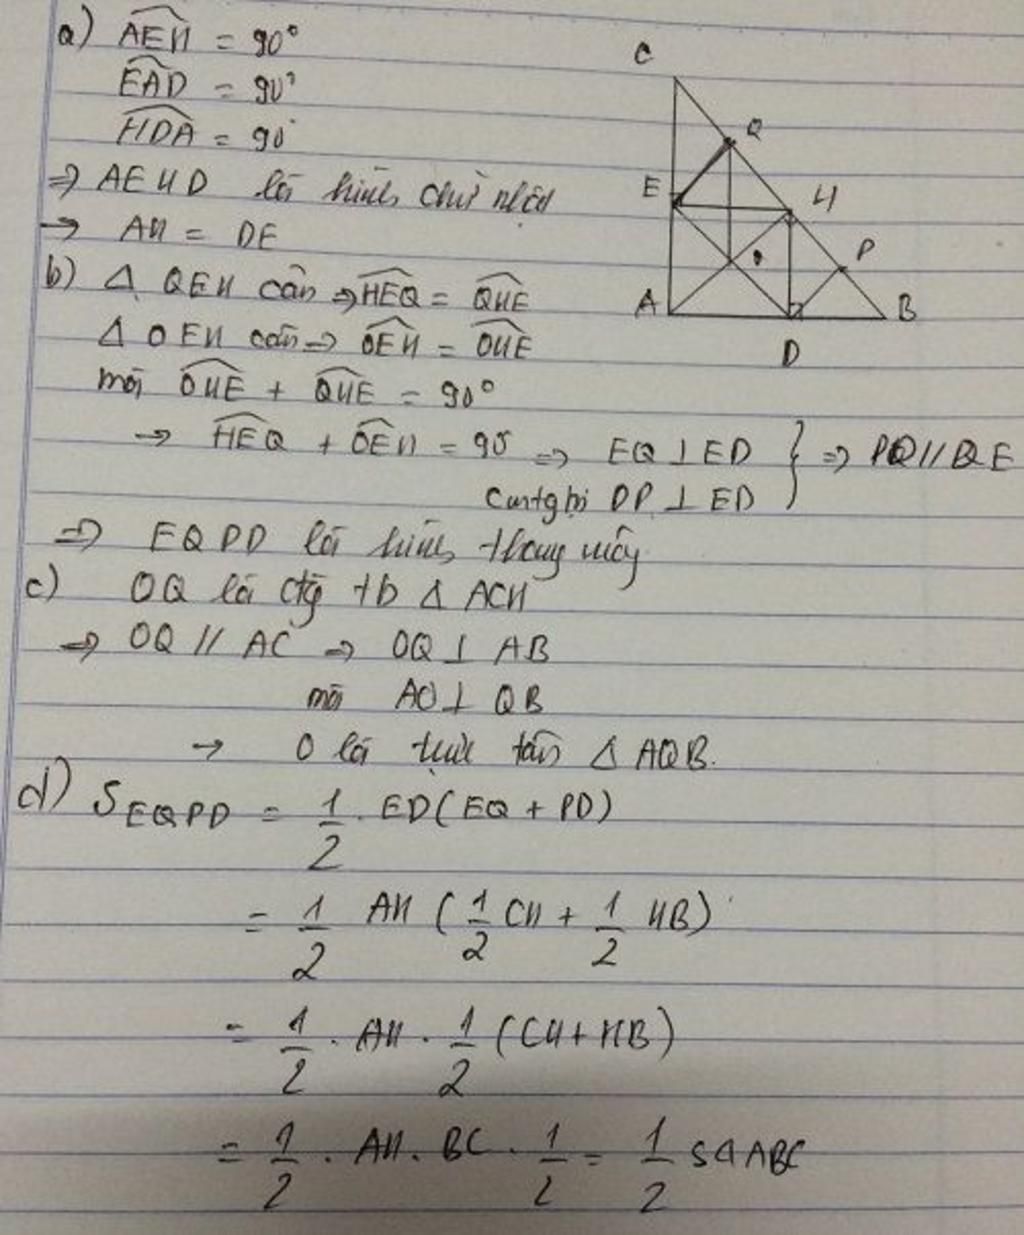 a) AEH = 90°
EAD = 90°
HDA = 90°
⇒ AEHD là hình chữ nhật
→ AH = DE
b) Δ QEH cân ⇒ HEQ = QHE
Δ OEH cân ⇒ OEH = OHE
mà OHE + QHE = 90°
→ HEQ + OEH = 90 ⇒ EQ ⊥ ED } ⇒ PD // QE
Cmtg thì DP ⊥ ED
⇒ EQPD là hình thang vuông
c) OQ là đtg tb Δ ACH
⇒ OQ // AC ⇒ OQ ⊥ AB
mà AO ⊥ QB
→ O là trực tâm Δ AQB.
d) S EQPD = 1/2 . ED(EQ + PD)
= 1/2 AH (1/2 CH + 1/2 HB)
= 1/2 . AH . 1/2 (CH + HB)
= 1/2 . AH . BC . 1/2 = 1/2 SΔABC
C
Q
E
H
O
P
A
B
D